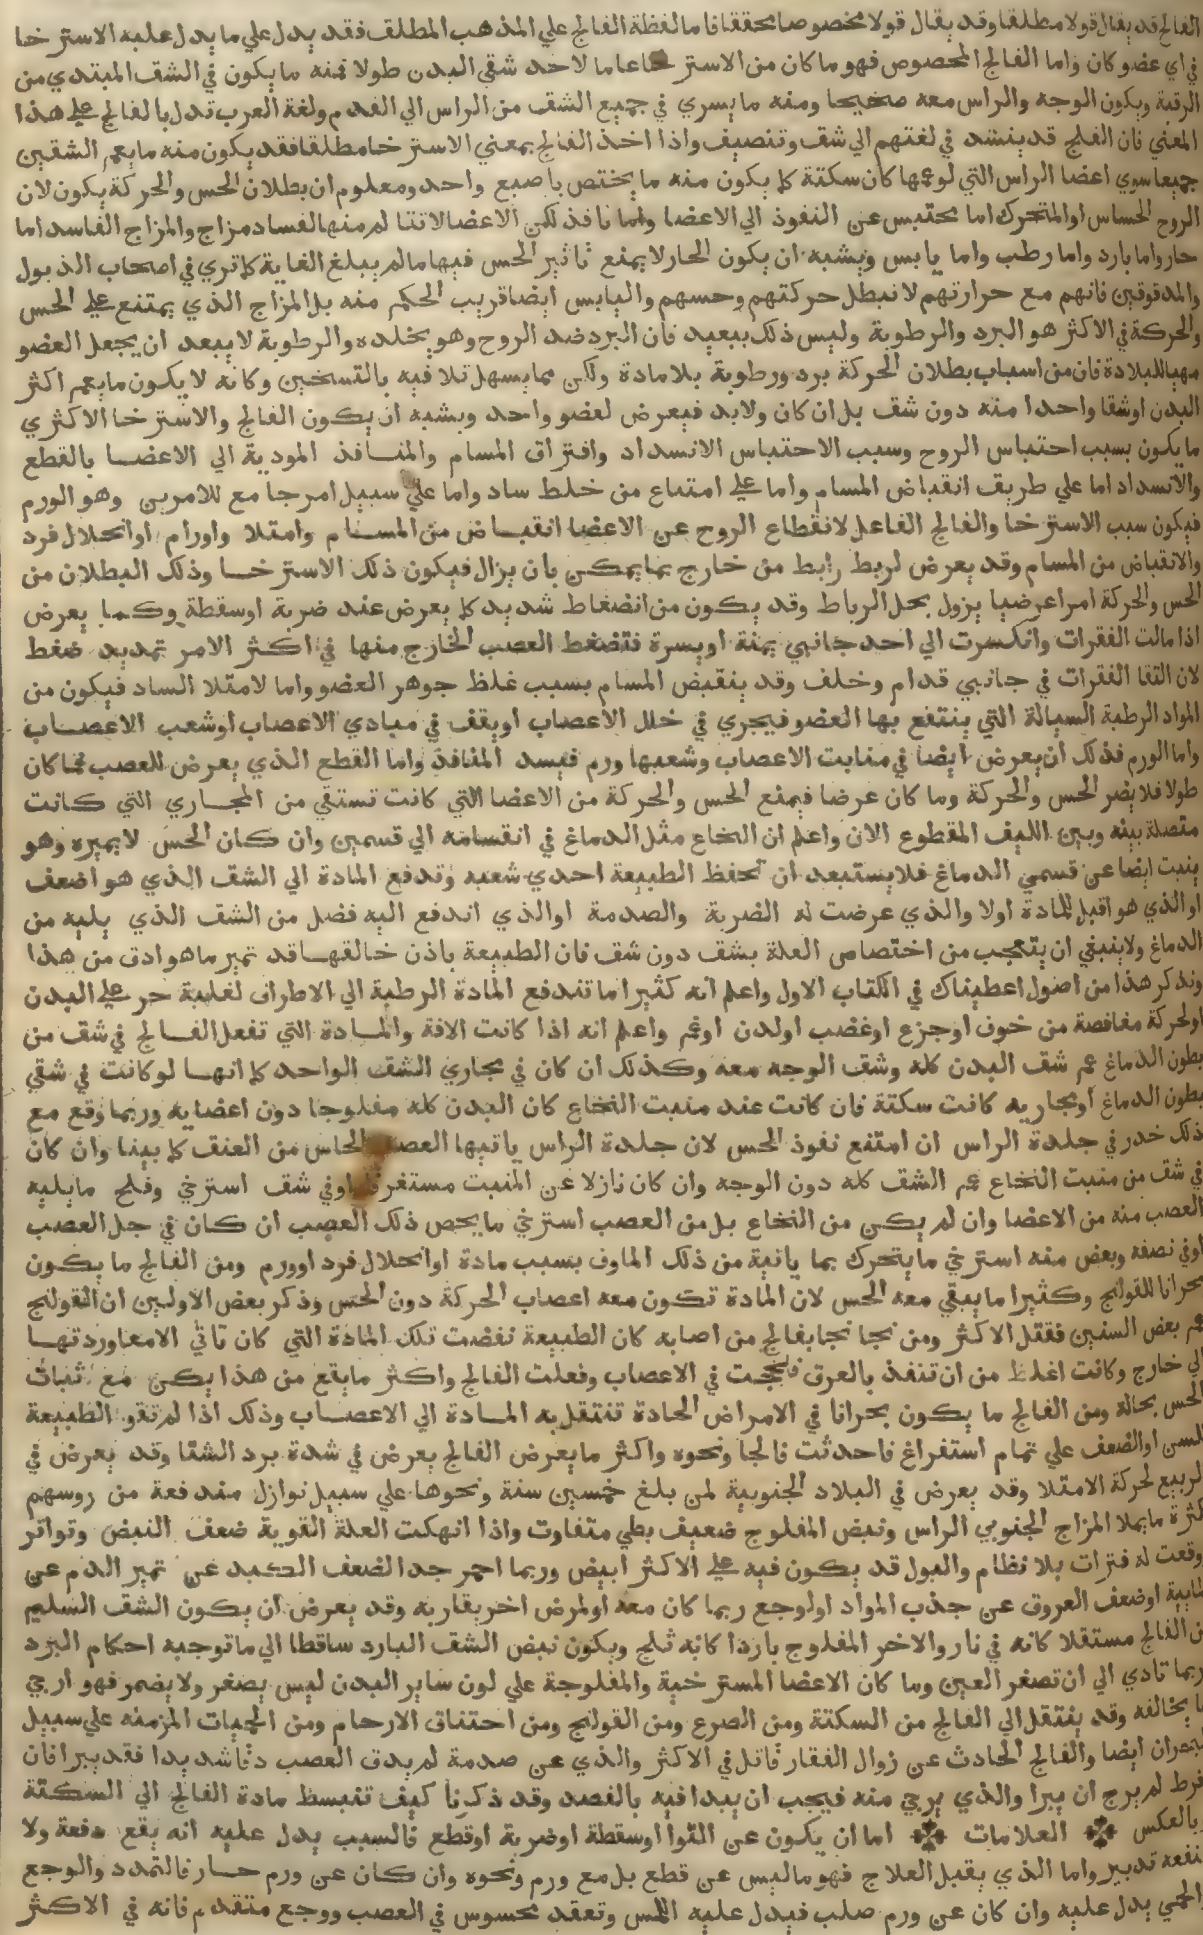 الفالج قد يقال قولا مطلقا وقد يقال قولا مخصوصا محققا فاما لفظة الفالج علي المذهب المطلق فقد يدل علي ما يدل عليه الاسترخا
في اي عضو كان واما الفالج المخصوص فهو ما كان من الاسترخا عاما لاحد شقي البدن طولا فمنه ما يكون في الشق المبتدي من
الرقبة ويكون الوجه والراس معه صحيحا ومنه ما يسري في جميع الشق من الراس الي القدم ولغة العرب تدل بالفالج علي هذا
المعني فان الفلج قد يشد في لغتهم الي شق وتنصيف واذا اخذ الفالج بمعني الاسترخا مطلقا فقد يكون منه ما يعم الشقين
جميعا سوي اعضا الراس التي لو عمها كان سكتة كما يكون منه ما يختص باصبع واحد ومعلوم ان بطلان الحس والحركة يكون لان
الروح الحساس او المتحرك اما محتبس عن النفوذ الي الاعضا واما نافذ لكن الاعضا لا تتاثر منها لفساد مزاج والمزاج الفاسد اما
حار واما بارد واما رطب واما يابس ويشبه ان يكون الحار لا يمنع تاثير الحس فيها ما لم يبلغ الغاية كما تري في اصحاب الذبول
والمدقوقين فانهم مع حرارتهم لا تبطل حركتهم وحسهم واليابس ايضا قريب الحكم منه بل المزاج الذي يمتنع علي الحس
والحركة في الاكثر هو البرد والرطوبة وليس ذلك ببعيد فان البرد ضد الروح وهو يخلده والرطوبة لا يبعد ان يجعل العضو
مهيا للبلادة فان من اسباب بطلان الحركة برد ورطوبة بلا مادة ولكن مما يسهل تلافيه بالتسخين وكانه لا يكون ما يعم اكثر
البدن او شقا واحدا منه دون شق بل ان كان ولابد فيعرض لعضو واحد ويشبه ان يكون الفالج والاسترخا الاكثري
ما يكون بسبب احتباس الروح وسبب الاحتباس الانسداد وافتراق المسام والمنافذ المودية الي الاعضا بالقطع
والانسداد اما علي طريق انقباض المسام واما علي امتناع من خلط ساد واما علي سبيل امر جامع للامرين وهو الورم
فيكون سبب الاسترخا والفالج الفاعل لانقطاع الروح عن الاعضا انقباض من المسام وامتلا واورام او انحلال فرد
والانقباض من المسام وقد يعرض لربط رابط من خارج بما يمكن بان يزال فيكون ذلك الاسترخا وذلك البطلان من
الحس والحركة امرا عرضيا يزول بحل الرباط وقد يكون من انضغاط شديد كما يعرض عند ضربة او سقطة وكما يعرض
اذا مالت الفقرات وانكسرت الي احد جانبي يمنة او يسرة فتضغط العصب الخارج منها في اكثر الامر تمديد ضغط
لان التقا الفقرات في جانبي قدام وخلف وقد ينقبض المسام بسبب غلظ جوهر العضو واما لامتلا الساد فيكون من
المواد الرطبة السيالة التي ينتقع بها العضو فيجري في خلل الاعصاب او يقف في مبادي الاعصاب او شعب الاعصاب
واما الورم فذلك ان يعرض ايضا في منابت الاعصاب وشعبها ورم فيسد المنافذ واما القطع الذي يعرض للعصب فما كان
طولا فلا يضر الحس والحركة وما كان عرضا فيمنع الحس والحركة من الاعضا التي كانت تستقي من المجاري التي كانت
متصلة بينه وبين الليف المقطوع الان واعلم ان النخاع مثل الدماغ في انقسامه الي قسمين وان كان الحس لا يميزه وهو
ينبت ايضا عن قسمي الدماغ فلا يستبعد ان تحفظ الطبيعة احدي شعبه وتدفع المادة الي الشق الذي هو اضعف
او الذي هو اقبل للمادة اولا والذي عرضت له الضربة والصدمة او الذي اندفع اليه فضل من الشق الذي يليه من
الدماغ ولا ينبغي ان يتعجب من اختصاص العلة بشق دون شق فان الطبيعة باذن خالقها قد تميز ما هو ادق من هذا
وتذكر هذا من اصول اعطيناك في الكتاب الاول واعلم انه كثيرا ما تندفع المادة الرطبة الي الاطراف لغلبة حر علي البدن
او لحركة مغافصة من خوف او جزع او غضب او لدن او غم واعلم انه اذا كانت الافة والمادة التي تفعل الفالج في شق من
بطون الدماغ عم شق البدن كله وشق الوجه معه وكذلك ان كان في مجاري الشق الواحد كما انها لو كانت في شقي
بطون الدماغ او مجاريه كانت سكتة فان كانت عند منبت النخاع كان البدن كله مفلوجا دون اعضايه وربما وقع مع
ذلك خدر في جلدة الراس ان امتنع نفوذ الحس لان جلدة الراس ياتيها العصب الحاس من العنق كما بينا وان كان
في شق من منبت النخاع عم الشق كله دون الوجه وان كان نازلا عن المنبت مستغرقا او في شق استرخي وفلج ما يليه
العصب منه من الاعضا وان لم يكن من النخاع بل من العصب استرخي ما يخص ذلك العصب ان كان في جل العصب
او في نصفه وبعض منه استرخي ما يتحرك بما ياتيه من ذلك الماوف بسبب مادة او انحلال فرد او ورم ومن الفالج ما يكون
بحرانا للقولنج وكثيرا ما يبقي معه الحس لان المادة تكون معه اعصاب الحركة دون الحس وذكر بعض الاولين ان القولنج
عم بعض السنين فقتل الاكثر ومن نجا نجا بفالج من اصابه كان الطبيعة نفضت تلك المادة التي كان تاتي الامعا وردتها
الي خارج وكانت اغلظ من ان تنفذ بالعرق فلججت في الاعصاب وفعلت الفالج واكثر ما يقع من هذا يكن مع ثبات
الحس بحاله ومن الفالج ما يكون بحرانا في الامراض الحادة تنتقل به المادة الي الاعصاب وذلك اذا لم تقو الطبيعة
للسن او الضعف علي تمام استفراغ فاحدثت فالجا ونحوه واكثر ما يعرض الفالج يعرض في شدة برد الشتا وقد يعرض في
الربيع لحركة الامتلا وقد يعرض في البلاد الجنوبية لمن بلغ خمسين سنة ونحوها علي سبيل نوازل مندفعة من روسهم
لكثرة ما يملا المزاج الجنوبي الراس ونبض المفلوج ضعيف بطي متفاوت واذا انهكت العلة القوية ضعف النبض وتواتر
ووقعت له فترات بلا نظام والبول قد يكون فيه علي الاكثر ابيض وربما احمر جدا لضعف الكبد عن تميز الدم عن
المايية او ضعف العروق عن جذب المواد او لوجع ربما كان معه او لمرض اخر يقاربه وقد يعرض ان يكون الشق السليم
من الفالج مستقلا كانه في نار والاخر المفلوج باردا كانه ثلج ويكون نبض الشق البارد ساقطا الي ما توجبه احكام البرد
وربما تادي الي ان تصغر العين وما كان الاعضا المسترخية والمفلوجة علي لون ساير البدن ليس يصغر ولا يضمر فهو ارجي
ما يخالفه وقد ينتقل الي الفالج من السكتة ومن الصرع ومن القولنج ومن احتناق الارحام ومن الحميات المزمنه علي سبيل
بحران ايضا والفالج الحادث عن زوال الفقار قاتل في الاكثر والذي عن صدمة لم يدق العصب دقا شديدا فقد يبرا فان
فرط لم يرج ان يبرا والذي يرجي منه فيجب ان يبدا فيه بالفصد وقد ذكرنا كيف تنبسط مادة الفالج الي السكتة
وبالعكس العلامات اما ان يكون عن التوا او سقطة او ضربة او قطع فالسبب يدل عليه انه يقع دفعة ولا
تنفعه تدبير واما الذي يقبل العلاج فهو ما ليس عن قطع بل مع ورم ونحوه وان كان عن ورم حار فالتمدد والوجع
الحمي يدل عليه وان كان عن ورم صلب فيدل عليه اللمس وتعقد محسوس في العصب ووجع متقدم فانه في الاكثر